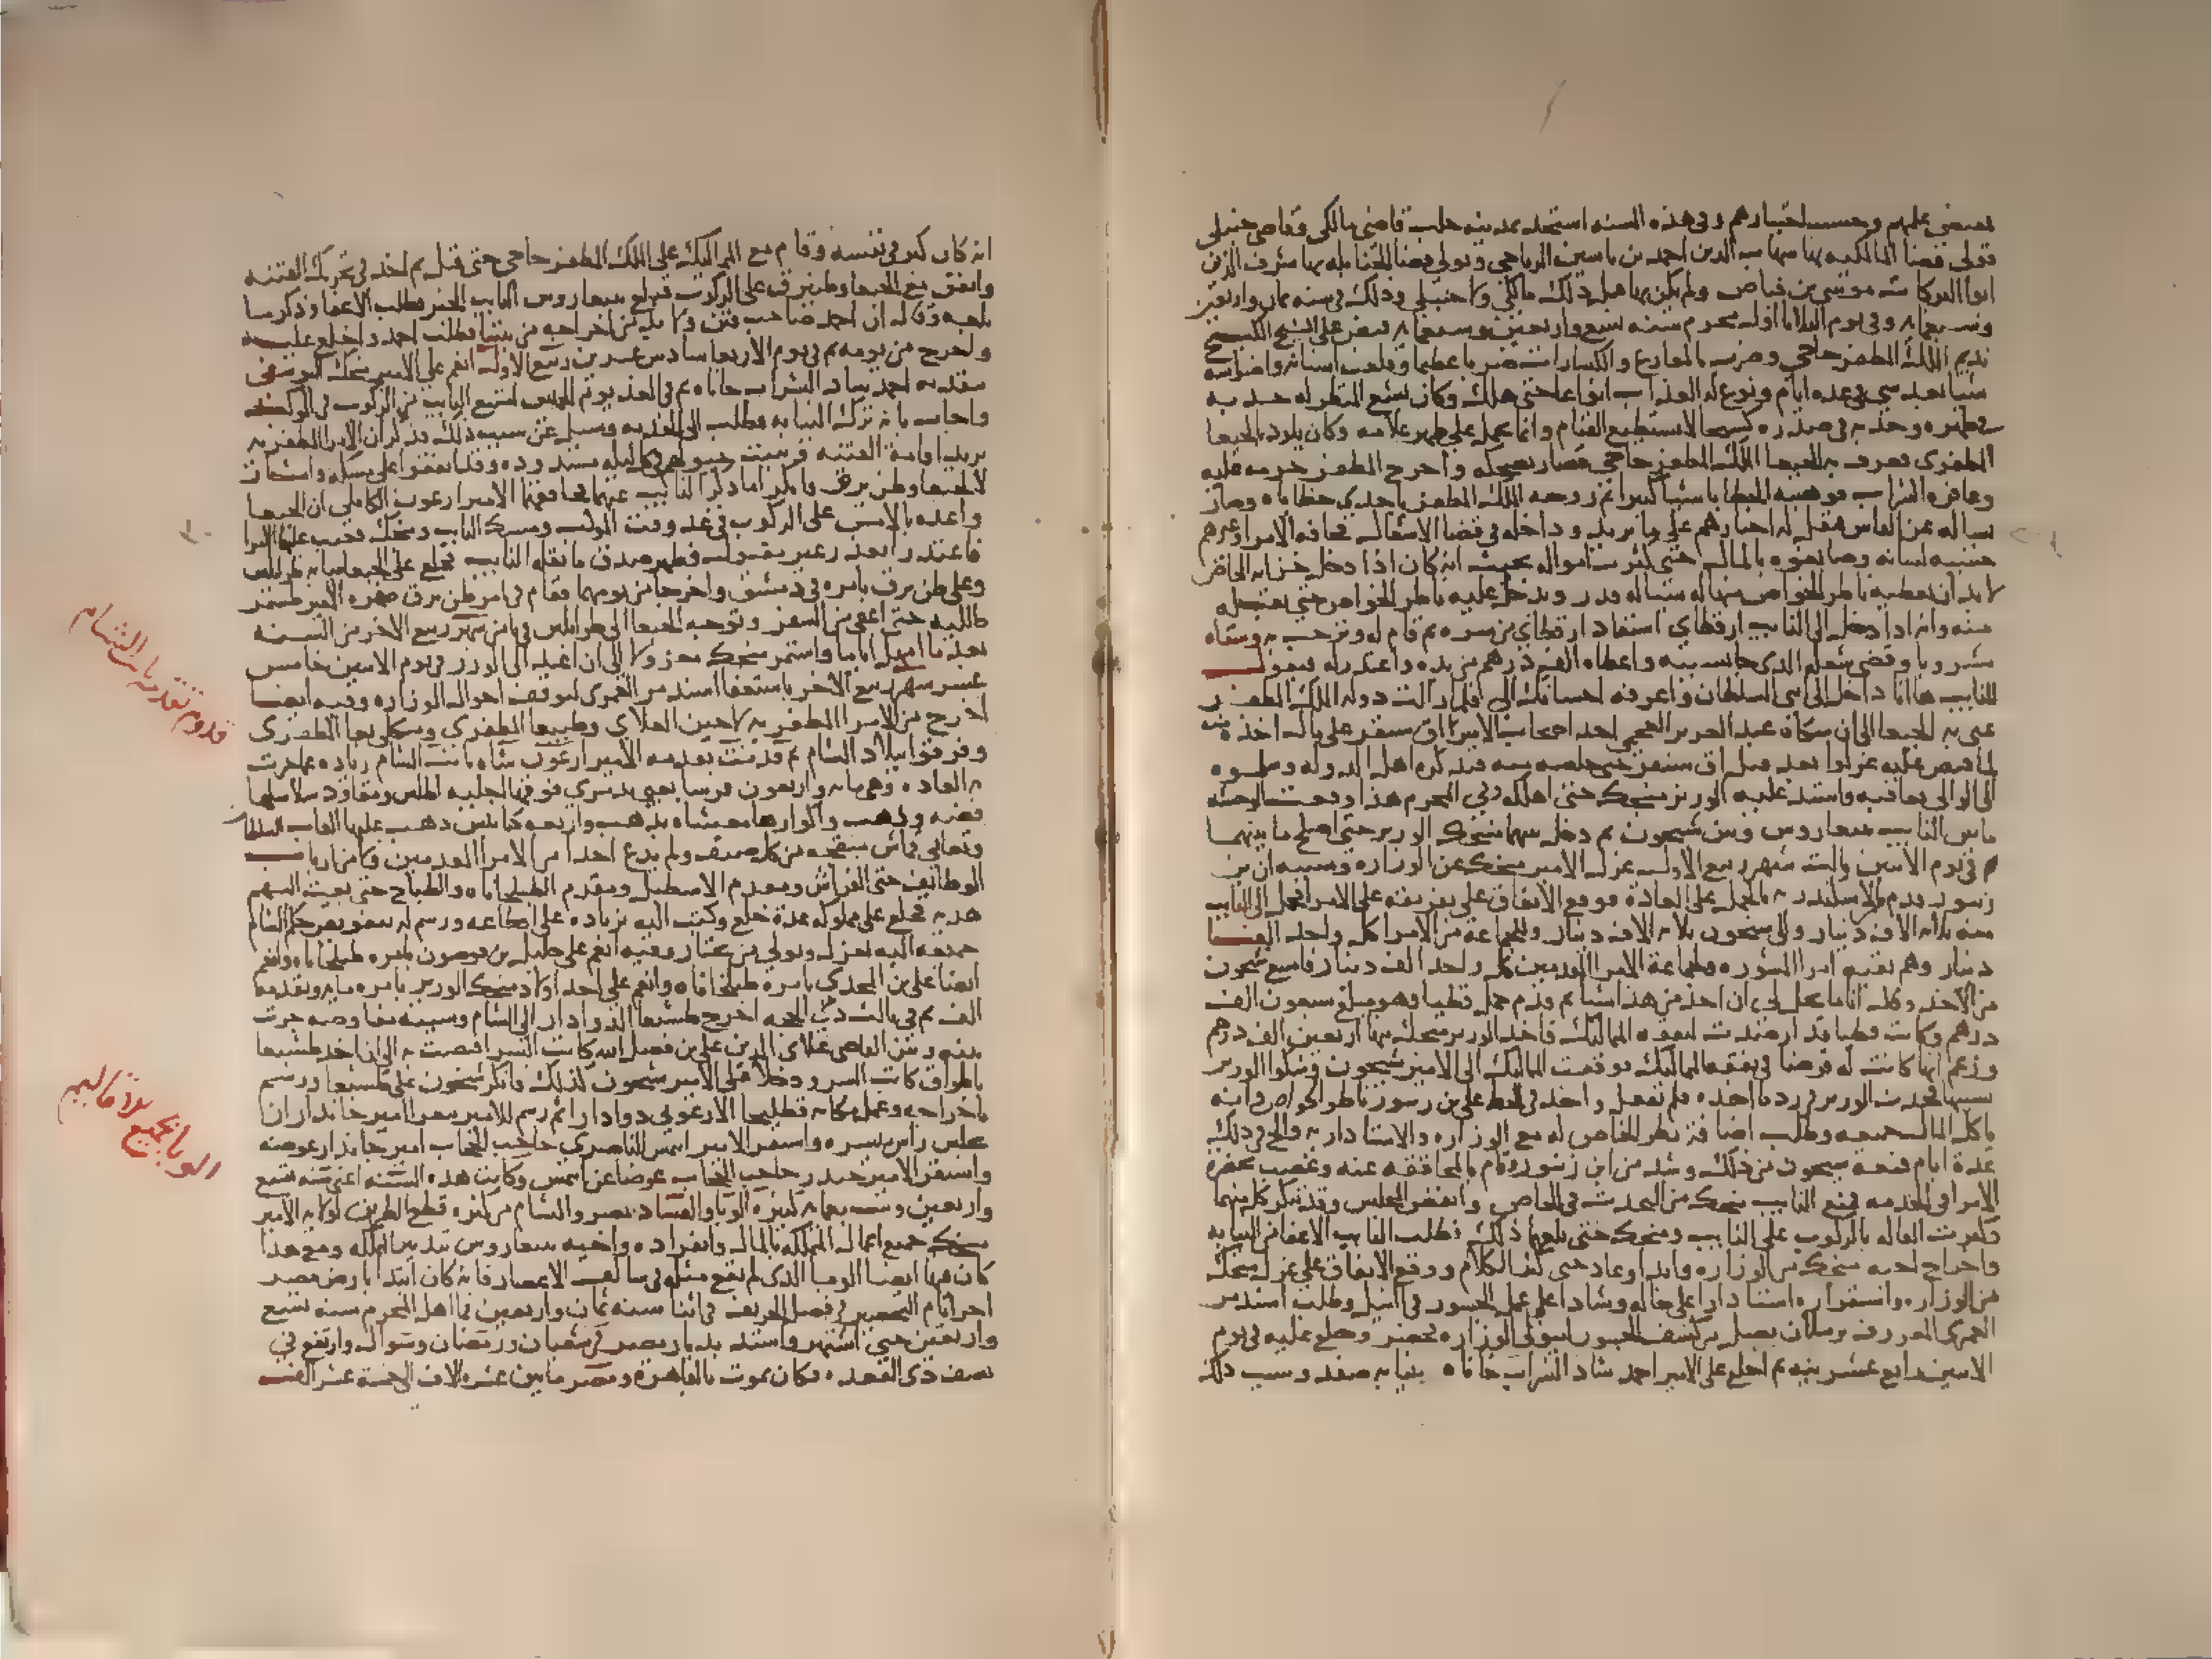 فقبض عليهم وحبسـ لاختيارهم وفي هذه السنه استجد بمدينه حلب قاضى مالكى وقاضى حنبلى
فولى قضا المالكيه بها شهاب الدين احمد بن ياسين الرباحى وتولى قضا الحنابله بها شرف الدين
ابوا البركات موسى بن فياض ولم يكن بها قبل ذلك مالكى ولا حنبلى وذلك في سنه ثمان واربعين
وسبعمايه وفي يوم الثلاثا اول محرم سنه تسع واربعين وسبعمايه قبض على الشيخ على الكسيح
نديم الملك المظفر حاجى وضرب بالمقارع والكسارات ضربا عظيما وقلعت اسنانه واضراسه
شيا بعد شي في عده ايام ونوع له العذاب انواعا حتى هلك وكان بشع المنظر له حدبه
في ظهره وحدبه في صدره كسيحا لا يستطيع القيام وانما يحمل على ظهر غلامه وكان يلوذ بالجبغا
المظفرى فعرف به الجبغا الملك المظفر حاجى فصار يضحكه واخرج المظفر حرمه عليه
وعاقره الشراب فوهبته الحظايا شيا كثيرا ثم زوجه الملك المظفر باحدى حظاياه وصار
يساله عن الناس فنقل له اخبارهم على ما يريد وداخله في قضا الاشغال فخافه الامرا وغيرهم
خشيه لسانه وصانعوه بالمال حتى كثرت امواله بحيث انه كان اذا دخل خزانه الخاص
لا بد ان يعطيه ناظر الخواص منها له شيا له قدر ويدخل عليه ناظر الخواص حتى يقبله
منه وانه اذا دخل الى النايب ارقطاى استعاذ ارقطاى من شره ثم قام له وترحب به وسقاه
مشروبا وقضى شغله الذى جا بسببه واعطاه الف درهم من يده واعتذر له فيقول
للنايب هاانا داخل الى ابنى السلطان واعرفه احسانك الى فلما زالت دوله الملك المظفر
عنى به الجبغا الى ان شكاه عبد العزيز العجمى احد اصحاب الامير اق سنقر على مال اخذه منه
لما قبض عليه غرلوا بعد قتل اق سنقر حتى خلصه منه فتذكره اهل الدوله وسلموه
الى الوالى فعاقبه واشتد عليه الوزير منجك حتى اهلكه وفي المحرم هذا وقعت الوحشه
ما بين النايب بيبغاروس وبين شيخون ثم دخل بينهما منجك الوزير حتى اصلح ما بينهما
ثم في يوم الاثنين ثالث شهر ربيع الاول عزل الامير منجك عن الوزاره وسببه ان بن
زنبور قدم من الاسكندريه بالحمل على العادة فوقع الاتفاق على تفرقته على الامرا فحمل الى النايب
منه ثلاثه الاف دينار والى شيخون ثلاثه الاف دينار وللجماعة من الامرا كل واحد الفـا
دينار وهم بقيه امرا المشوره ولجماعة الامرا المقدمين كل واحد الف دينار فامتنع شيخون
من الاخذ وقال انا ما يحل لى ان اخذ من هذا شيا ثم قدم حمل قطيا وهو مبلغ سبعون الف
درهم وكانت قطيا قد ارصدت لنفقه المماليك فاخذ الوزير منجك منها اربعين الف درهم
وزعم انها كانت له قرضا في نفقه المماليك فوقفت المماليك الى الامير شيخون وشكوا الوزير
بسببها فحدث الوزير في رد ما اخذه فلم يفعل واخذ في الحط على بن زنبور ناظر الخواص وانه
ياكل المال جميعه وطلب اضافة نظر الخاص له مع الوزاره والاستاداريه والح في ذلك
عدة ايام فمنعه شيخون من ذلك وشد من ابن زنبور وقام بالمحاققه عنه وغضب بحضره
الامرا في الخدمه فمنع النايب منجك من التحدث في الخاص وانفض المجلس وقد تنكر كل منهما
وكثرت القاله بالركوب على النايب ومنجك حتى بلغهما ذلك فطلب النايب الاعفا من النيابه
واخراج اخيه منجك من الوزاره وابدا وعاد حتى كثر الكلام ووقع الاتفاق على عزل منجك
من الوزاره واستقراره استادارا على حاله وشادا على عمل الجسور في النيل وطلب اسندمر
العمرى المعروف برسلان بصل من كشف الجسور ليتولى الوزاره فحضر وخلع عليه في يوم
الاثنين رابع عشرينه ثم اخلع على الامير احمد شاد الشراب خاناه بنيابه صفد وسبب ذلك
انه كان كبر في نفسه وقام مع المماليك على الملك المظفر حاجى حتى قتل ثم اخذ في تحريك الفتنه
واتفق مع الجبغا وطنيرق على الركوب فبلغ بيبغاروس النايب الخبر فطلب الاعفا وذكر ما
بلغه وقال ان احمد صاحب فتن ولا بد من اخراجه من بيننا فطلب احمد واخلع عليه
واخرج من يومه ثم في يوم الاربعا سادس عشرين ربيع الاول انعم على الامير منجك اليوسفى
بتقدمه احمد شاد الشراب خاناه ثم في الغد يوم الخميس امتنع النايب من الركوب في الموكب
واجاب بانه ترك النيابه فطلب الى الخدمه وسيل عن سبب ذلك فذكر ان الامرا المظفريه
تريد اقامة الفتنه وتبيت خيولهم في كل ليله مشدوده وقد اتفقوا على مسكه واشار
لالجبغا وطنيرق فانكرا ما ذكر النايب عنهما فحاققهما الامير ارغون الكاملى ان الجبغا
واعده بالامس على الركوب في غد وقت الموكب ومسك النايب ومنجك فعتب عليهما الامرا
فاعتذرا بعذر غير مقبول فظهر صدق ما نقله النايب فخلع على الجبغا بنيابه طرابلس
وعلى طنيرق بامره في دمشق واخرجا من يومهما فقام في امر طنيرق صهره الامير طشتمر
طلليه حتى اعفى من السفر وتوجه الجبغا الى طرابلس في ثامن شهر ربيع الاخر من السنه
بعد ما امهل اياما واستمر منجك معزولا الى ان اعيد الى الوزر في يوم الاثنين خامس
عشر شهر ربيع الاخر باستعفا اسندمر العمرى لتوقف احوال الوزاره وفيه ايضا
اخرج من الامرا المظفريه لاجين العلاى وطيبغا المظفرى ومنكلى بغا المظفرى
وفرقوا ببلاد الشام ثم قدمت تقدمه الامير ارغون شاه نايب الشام زياده عما جرت
به العاده وهى مايه واربعون فرسا بعبى تدمرى فوقها اجليه اطلس ومقاود سلاسلها
فضه وذهب واكوارها مغشاه بذهب واربعه كنابيش ذهب عليها القاب السلطان
وتعابى قماش مبقجه من كل صنف ولم يدع احدا من الامرا المقدمين ولا من ارباب
الوظايف حتى الفراش ومقدم الاسطبل ومقدم الطبلخاناه والطباخ حتى بعث اليهم
هديه فخلع على مملوكه عدة خلع وكتب اليه بزياده على اقطاعه ورسم له بتفويض حكم الشام
جميعه اليه يعزل ويولى من يختار وفيه انعم على خليل بن قوصون بامره طبلخاناه وانعم
ايضا على بن المجدى بامره طبلخاناه وانعم على احد اولاد منجك الوزير بامره مايه وتقدمه
الف ثم في ثالث ذى الحجه اخرج طشبغا الدوادار الى الشام وسببه مفاوضه جرت
بينه وبين القاضى علاى الدين على بن فضل الله كاتب السر افضت به الى ان اخذ طشبغا
باطواق كاتب السر ودخلا على الامير شيخون كذلك فانكر شيخون على طشبغا ورسم
باخراجه وعمل مكانه قطليجا الارغونى دوادارا ثم رسم للامير بيغرا امير جاندار ان
يجلس راس ميسره واستقر الامير ايتمش الناصرى حاجب الحجاب امير جاندار عوضه
واستقر الامير قبلاى حاجب الحجاب عوضا عن ايتمش وكانت هذه السنه اعنى سنه تسع
واربعين وسبعمايه كثيره الوبا والفساد بمصر والشام من كثره قطع الطريق لولايه الامير
منجك جميع اعمال المملكه بالمال وانفراده واخيه بيبغاروس بتدبير المملكه ومع هذا
كان فيها ايضا الوبا الذى لم يقع مثله في سالف الاعصار فانه كان ابتدا بارض مصر
اخر ايام التخضير في فصل الخريف في اثنا سنه ثمان واربعين فما اهل المحرم سنه تسع
واربعين حتى اشتهر واشتد بديار مصر في شعبان ورمضان وشوال وارتفع في
نصف ذى القعده فكان يموت بالقاهرة ومصر ما بين عشره الاف الى خمسة عشر الف
قدوم تقدمة نايب الشام
الوبا بجميع الاقاليم